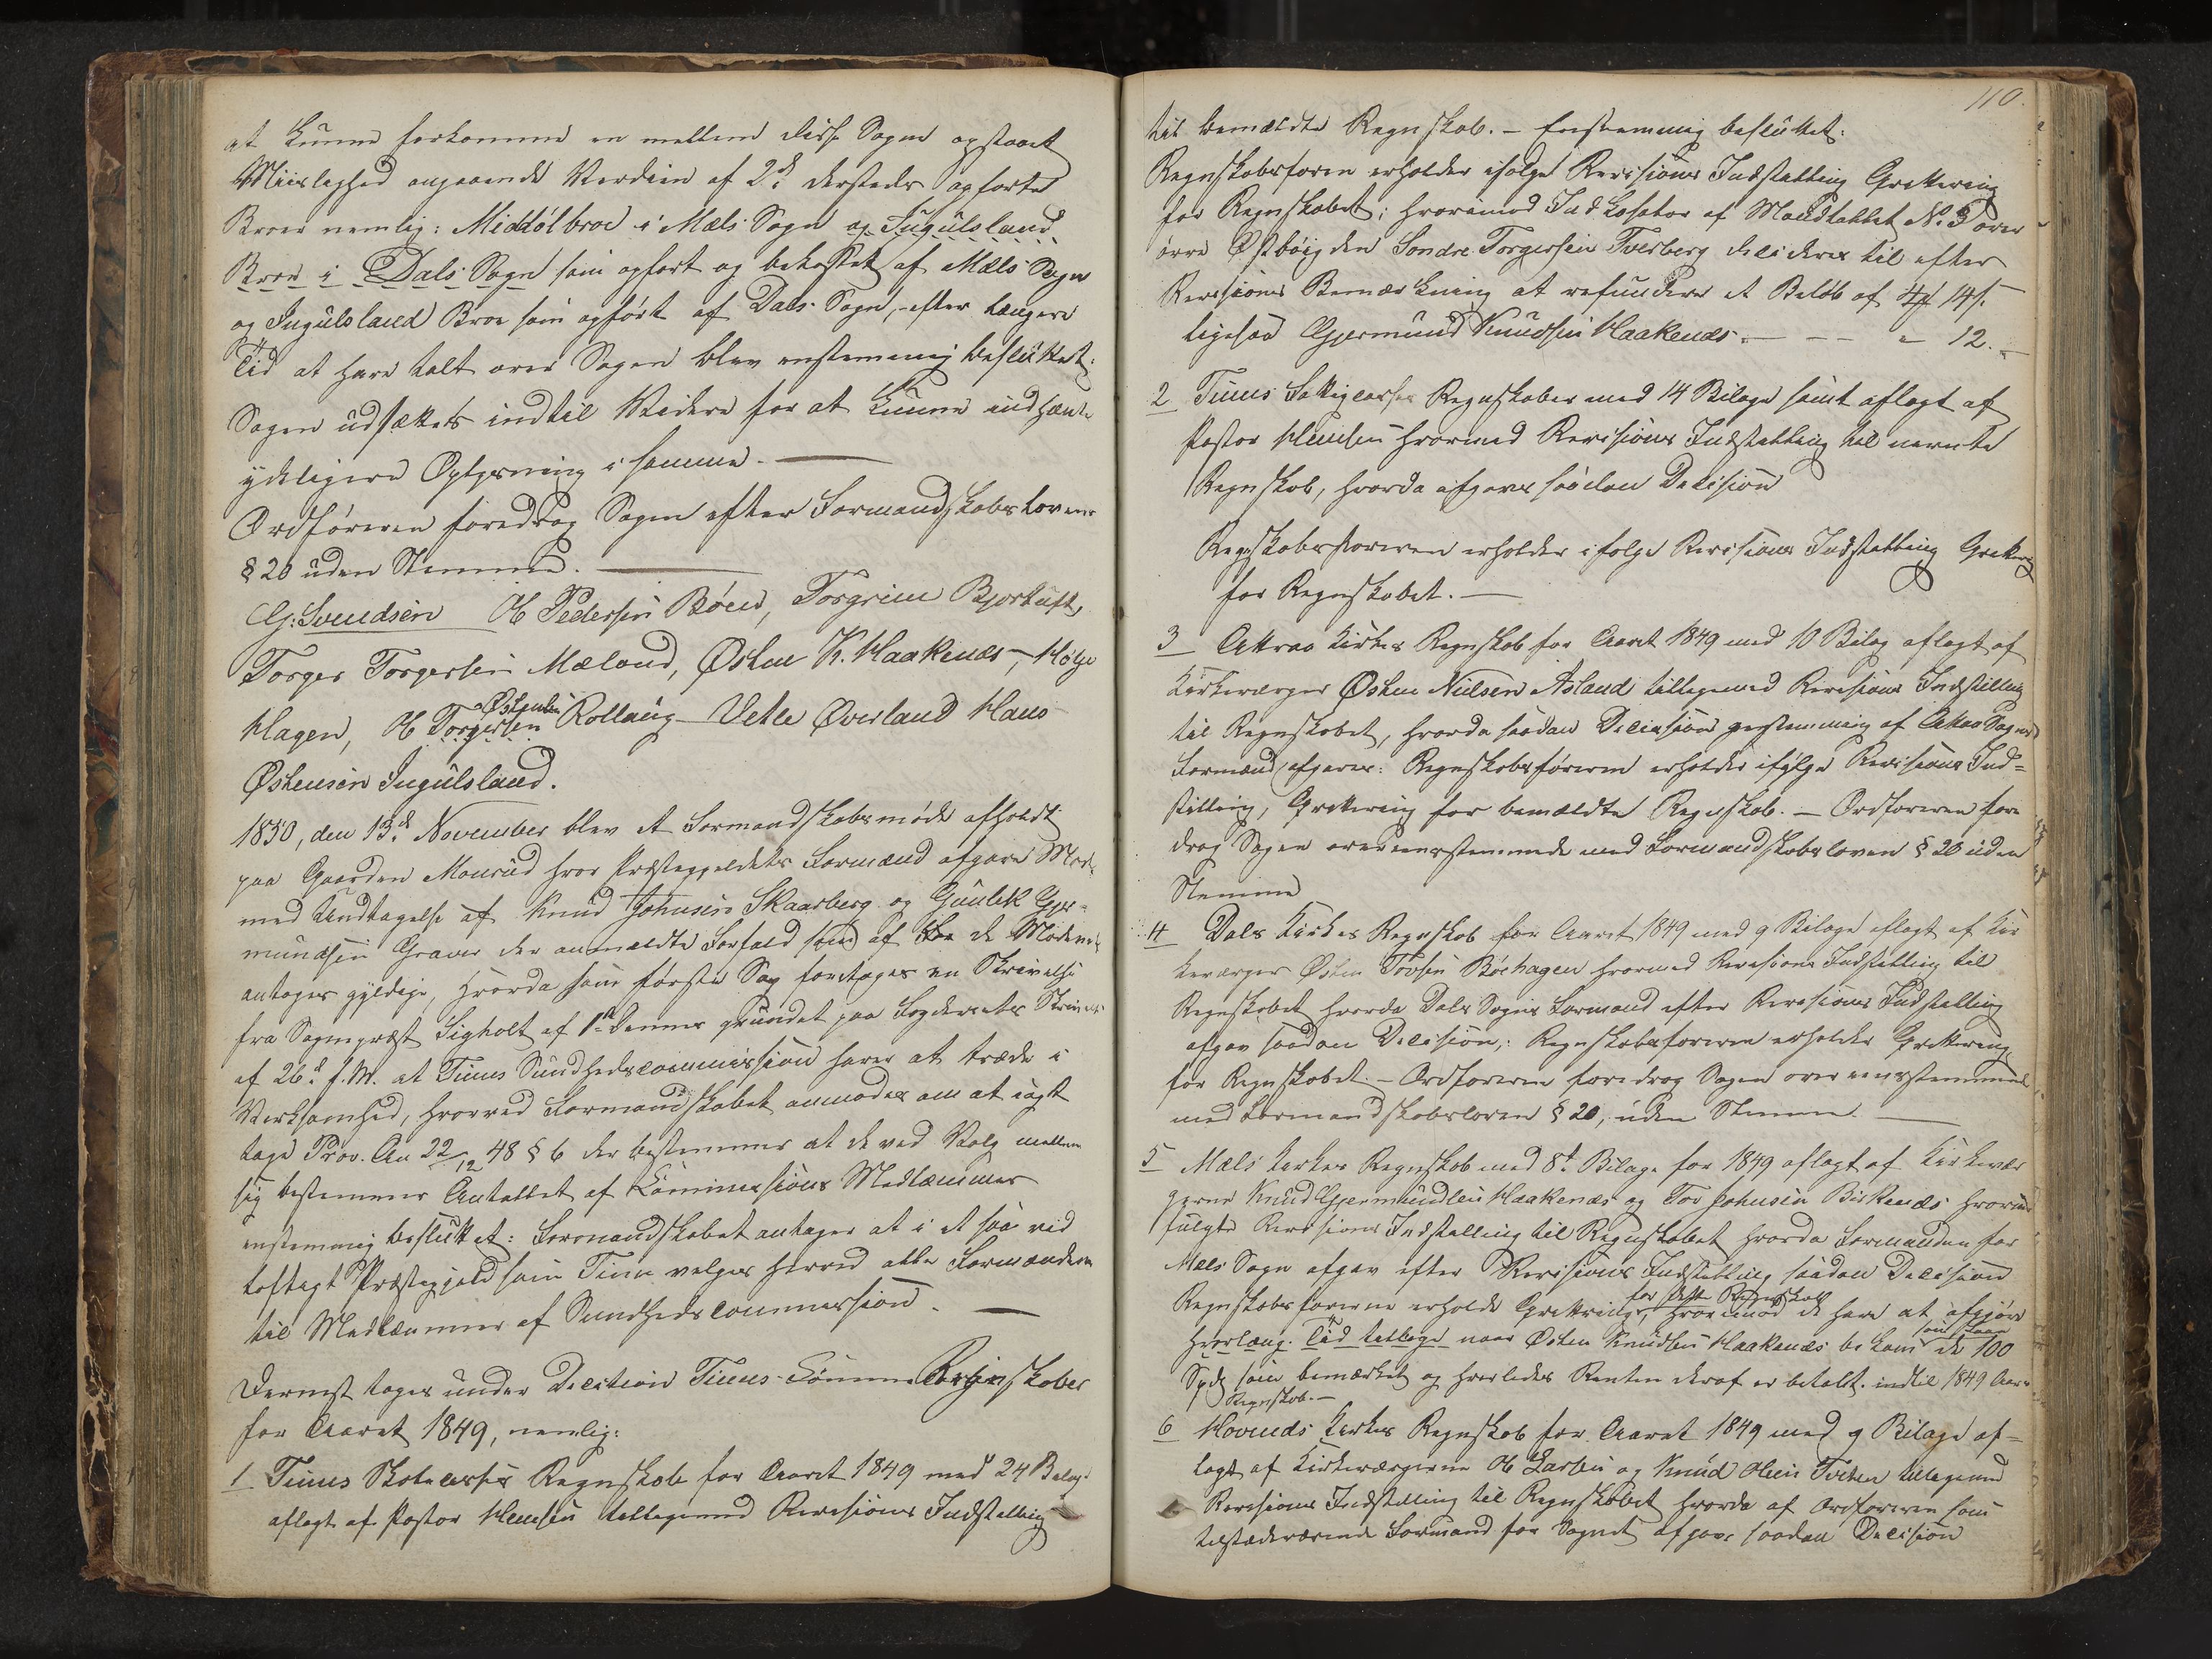 at kunne forkomme en mellem disse Sogne opstaaet
Misslighed angaaende Værdien af 2de dersteds opførte
Broer nemlig: Middølbroe i Mæls Sogn og Ingulsland
Broe i Dals Sogn som opført og bekostet af Mæls Sogn
og Ingulsland Broe som opført af Dals Sogn, efter længere
Tid at have talt over Sagen blev enstemmig besluttet:
Sagen udsættes indtil Videre for at kunne indhænte
ydeligere Oplysning i samme. —
Ordføreren foredrog Sagen efter Formandskabslovens
§ 20 uden Stemme. —
G. Svendsen O Pedersen Bøen, Torgrim Bjortuft,
Torger Torgersen Mæland, Østen K. Haakenæs —, Hølje
Hagen, O Torgersen Østensen Rollaug Vetle Øverland Hans
Østensen Ingulsland.
1850, den 13de November blev et Formandskabsmøde afholdt
paa Gaarden Monrud hvor Præstegjeldets Formænd afgave Møde
med Undtagelse af Knud Johnsen Skaarberg og Gunlek Gjer-
mundsen Graver der anmeldte Forfald som af de Mødene
antoges gyldige, hvorda som første Sag foretoges en Skrivelse
fra Sognepræst Sigholt af 1ste dennes grundet paa Fogderiets Skrivelse
af 26de f. M. at Tinns Sundhedscommission haver at træde i
Virksomhed, hvorved Formandskabet anmodes om at iagt
tage Prov. An 22/12 48 § 6 der bestemmer at de ved Valg mellem
sig bestemmer Antallet af Commissions Medlemmer
enstemmig besluttet: Formandskabet antager at i et saa vid
løftigt Præstegjeld som Tinn vælges herved alle Formændene
til Medlemmer af Sundhedscommission. —
Dernest toges under Decition Tinns Commune Regnskaber
for Aaret 1849, nemlig:
1 Tinns Skolecasses Regnskab for Aaret 1849 med 24 Bilage
aflagt af Pastor Hensen tilligemed Revisions Indstilling
110.
til bemældte Regnskab. — Enstemmig besluttet:
Regnskabsføren erholder ifølge Revisions Indstilling Qvittering
for Regnskabet; hvorimod Indkasator af Mandtallet No 3 over
øvre Østbøigden Sondre Torgersen Tverberg decideres til efter
Revisions Bemærkning at refundere et Beløb af 14 s.
ligesaa Gjermund Knudsen Haakenæs. — — - 12. -
2 Tinns Fattigcasse Regnskaber med 14 Bilage samt aflagt af
Pastor Hensen hvormed Revisions Indstilling til nævnte
Regnskab, hvorda afgaves saadan Decision
Regnskabsføreren erholder ifølge Revisions Indstilling Qvittering
for Regnskabet. —
3 Attraa Kirkes Regnskab for Aaret 1849 med 10 Bilag aflagt af
Kirkeværger Østen Nielsen Asland tilligemed Revisions Indstilling
til Regnskabet, hvorda saadan Decision af Attraa Sogns
Formænd afgaves: Regnskabsføreren erholder ifølge Revisions Ind-
stilling, Qvittering for bemældte Regnskab. — Ordføreren fore
drog Sagen overeensstemmede med Formandskabsloven § 20 uden
Stemme
4 Dals Kirkes Regnskab for Aaret 1849 med 9 Bilage aflagt af Kir
keværger Østen Tovsen Bøehagen hvormed Revisions Indstilling til
Regnskabet hvorda Dals Sogns Formænd efter Revisions Indstilling
afgav saadan Decision,: Regnskabsføreren erholder Qvittering
for Regnskabet. — Ordføreren foredrog Sagen overeensstemmende
med Formandskabsloven § 20, uden Stemme. —
5 Mæls Kirkes Regnskab med 8te Bilage for 1849 aflagt af Kirkevær
gerne Knud Gjermundsen Haakenæs og Tor Johnsen Birkenæs hvormed
fulgte Revisions Indstilling til Regnskabet hvorda Formændene for
Mæls Sogn afgav efter Revisions Indstilling saadan Decision
Regnskabsførerne erholde Qvittering for dette Regnskab, hvorimod de have at afgjøre
hvorlang Tid tilbage naar Østen Knudsen Haakenæs bekom som Laan de 100
Spd som bemærket og hvorledes Renten deraf er betalt indtil 1849 Aars
Regnskab. —
6 Hovinds Kirkes Regnskab for Aaret 1849 med 9 Bilage af-
lagt af Kirkeværgerne O Larsen og Knud Olsen Tveten tilligemed
Revisions Indstilling til Regnskabet hvorda af Ordføreren som
tilstædeværende Formand for Sognet afgave saadan Decision